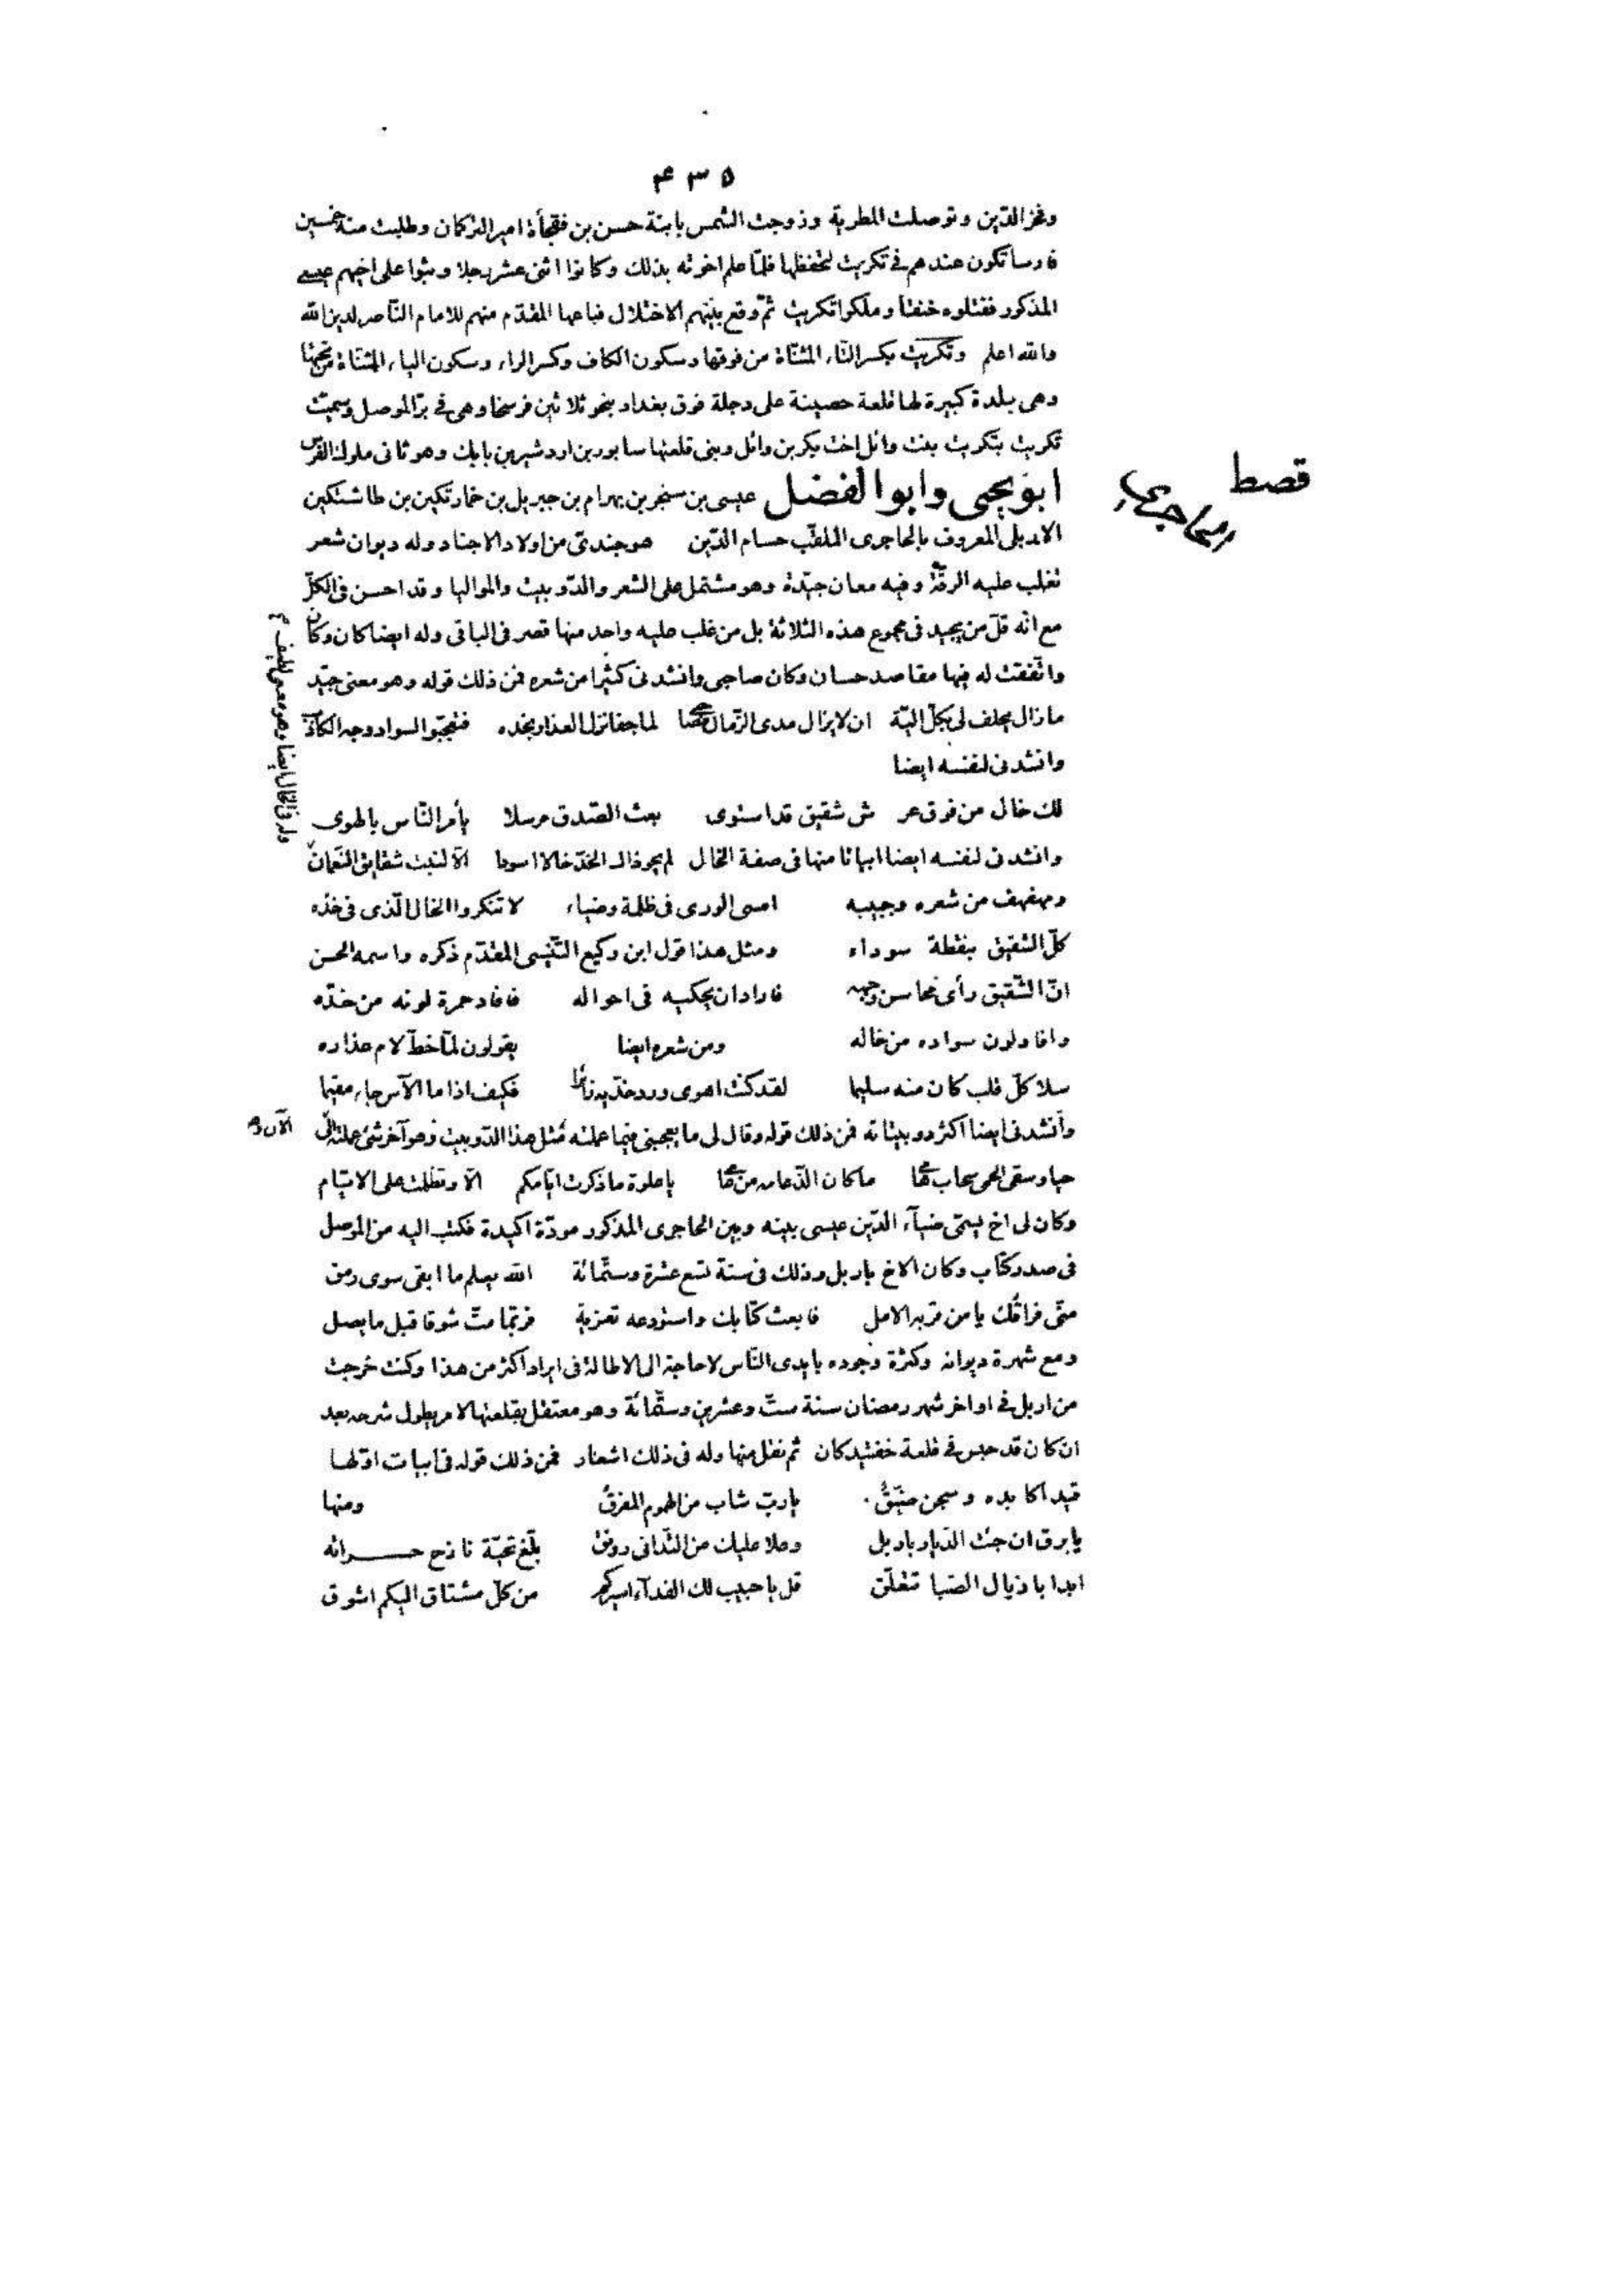 ۴۳۵
وفخر الدّين وتوصلت المطربة وزوجت الشمس بابنة حسن بن قفجاق امير التركمان وطلبت منه خمسين
فارسا تكون عندهم فى تكريت لتحفظها فلمّا علم اخوته بذلك وكانوا اثنى عشر رجلا وثبوا على اخيهم عيسى
المذكور فقتلوه خنقا وملكوا تكريت ثمّ وقع بينهم الاختلال فباعها المقدّم منهم للامام النّاصر لدين الله
والله اعلم وتكريت بكسر التّاء المثنّاة من فوقها وسكون الكاف وكسر الراء وسكون الياء المثنّاة من تحتها
وهى بلدة كبيرة لها قلعة حصينة على دجلة فوق بغداد بنحو ثلاثين فرسخا وهى فى برّ الموصل وسميت
تكريت بتكريت بنت وائل اخت بكر بن وائل وبنى قلعتها سابور بن اردشير بن بابك وهو ثانى ملوك الفرس
قصط
الحاجرى
ابو يحيى وابو الفضل عيسى بن سنجر بن بهرام بن جبريل بن خمارتكين بن طاشتكين
الاربلى المعروف بالحاجرى الملقّب حسام الدّين هو جندىّ من اولاد الاجناد وله ديوان شعر
تغلب عليه الرقّة وفيه معان جيّدة وهو مشتمل على الشعر والدّوبيت والمواليا وقد احسن فى الكلّ
مع انّه قلّ من يجيد فى مجموع هذه الثلاثة بل من غلب عليه واحد منها قصر فى الباقى وله ايضا كان وكان
واتّفقت له فيها مقاصد حسان وكان صاحبى وانشدنى كثيرا من شعره فمن ذلك قوله وهو معنى جيّد
ما زال يحلف لى بكلّ اليّة ان لا يزال مدى الزّمان مصاحبى لما جفا نزل العذار بخده فتعجّبوا لسواد وجه الكاذب
وانشدنى لنفسه ايضا
وله فى الخال ايضا وهو معنى لطيف
لك خال من فوق عر ش شقيق قد استوى بعث الصّدق مرسلا يأمر النّاس بالهوى
وانشدنى لنفسه ايضا ابياتا منها فى صفة الخال لم يحو ذاك الخدّ خالا اسودا الّا لنبت شقايق النّعمان
ومهفهف من شعره وجبينه امسى الورى فى ظلمة وضياء لا تنكروا الخال الّذى فى خدّه
كلّ الشقيق بنقطة سوداء ومثل هذا قول ابن وكيع التّنّيسى المقدّم ذكره واسمه الحسن
انّ الشّقيق رأى محاسن وجهه فاراد ان يحكيه فى احواله فافاد حمرة لونه من خدّه
وافاد لون سواده من خاله ومن شعره ايضا يقولون لمّا خطّ لام عذاره
سلا كلّ قلب كان منه سليما لقد كنت اهوى ورد خدّيه زائرا فكيف اذا ما الآس جاء مقيما
وانشدنى ايضا اكثر دوبيتاته فمن ذلك قوله وقال لى ما يعجبنى فيما عملته مثل هذا الدّوبيت وهو آخر شئ عملته الى
الآن وهو
حيا وسقى الحمى سحاب هامى ما كان الذّ عامه من عام يا علوة ما ذكرت ايّامكم الّا وتظلّمت على الايّام
وكان لى اخ يسمّى ضيآء الدّين عيسى بينه وبين الحاجرى المذكور مودّة اكيدة فكتب اليه من الموصل
فى صدر كتاب وكان الاخ باربل وذلك فى سنة تسع عشرة وستّمائة الله يعلم ما ابقى سوى رمق
منّى فراقك يا من قربه الامل فابعث كتابك واستودعه تعزية فربّما متّ شوقا قبل ما يصل
ومع شهرة ديوانه وكثرة وجوده بايدى النّاس لا حاجة الى الاطالة فى ايراد اكثر من هذا وكنت خرجت
من اربل فى اواخر شهر رمضان سنة ستّ وعشرين وستّمائة وهو معتقل بقلعتها لامر يطول شرحه بعد
ان كان قد حبس فى قلعة خفتيدكان ثم نقل منها وله فى ذلك اشعار فمن ذلك قوله فى ابيات اوّلها
قيد اكابده وسجن ضيّقُ يا ربّ شاب من الهموم المفرق ومنها
يا برق ان جئت الديار باربل وعلا عليك من التّدانى رونق بلّغ تحيّة نازح حسراته
ابدا باذيال الصّبا تتعلّق قل يا حبيب لك الفدآء اسيركم من كلّ مشتاق اليكم اشوق